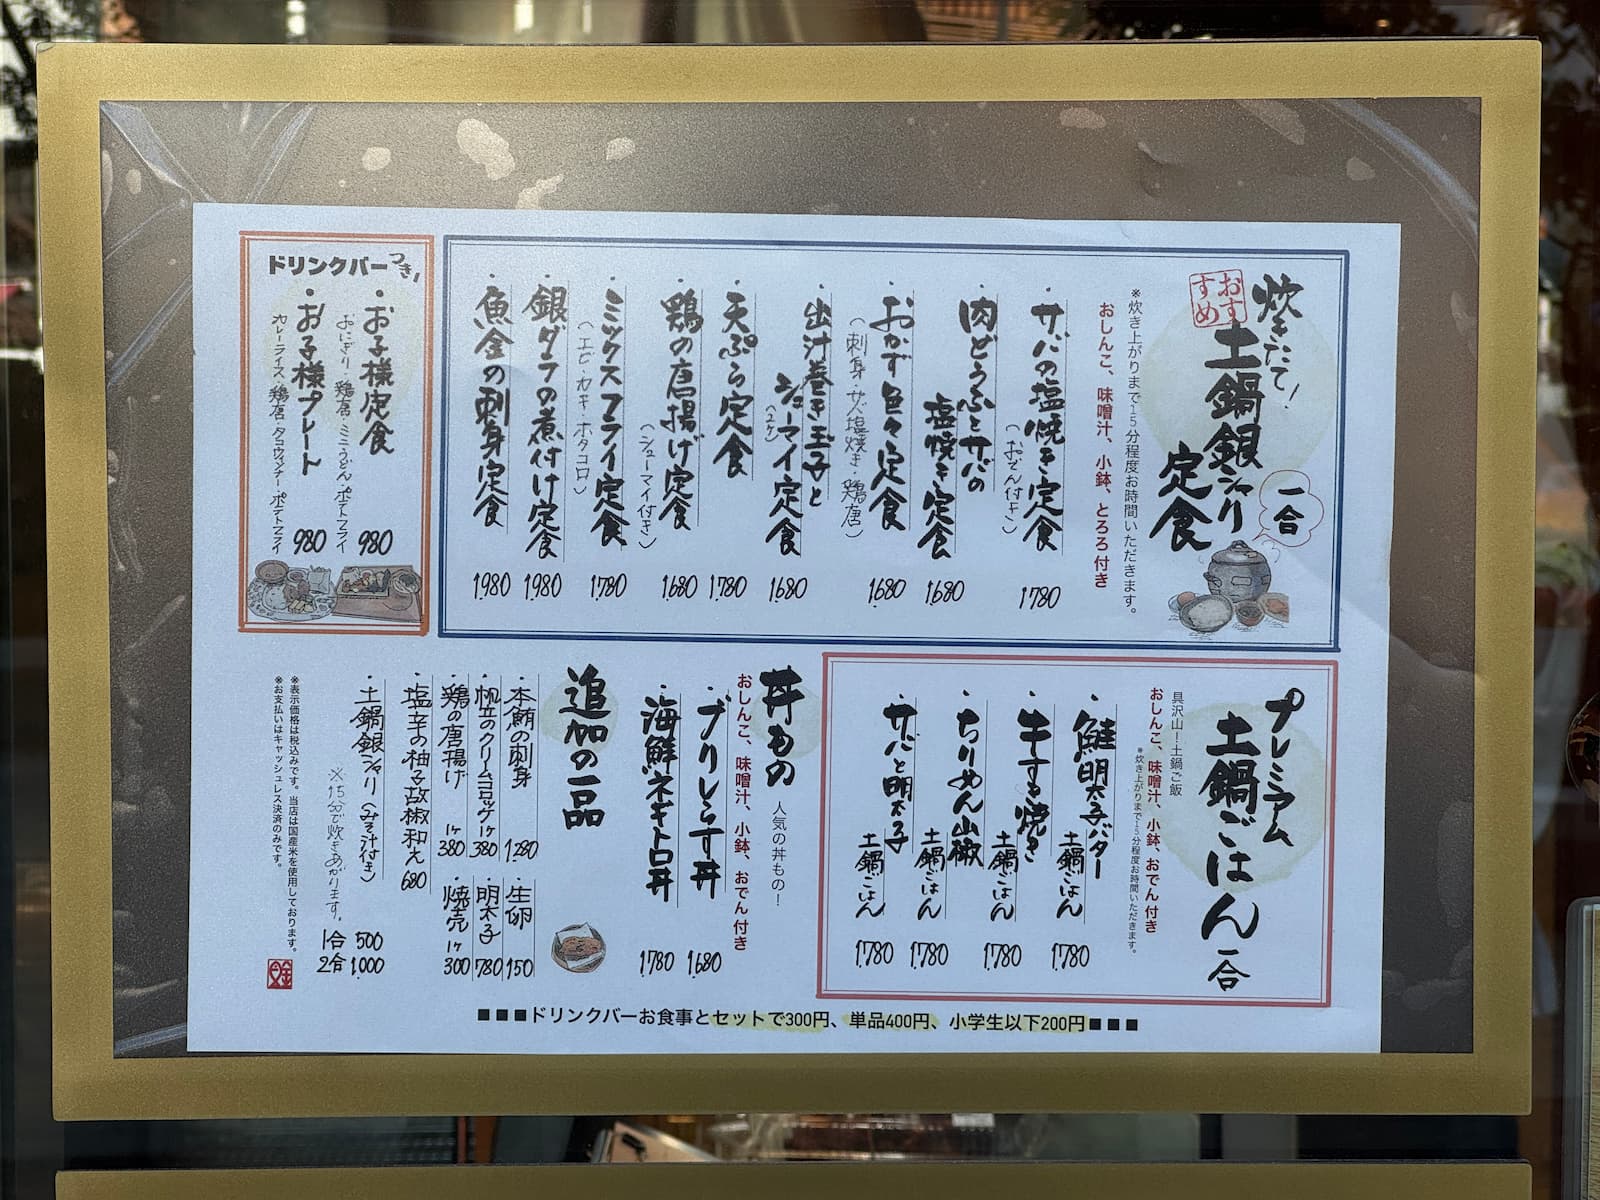 炊きたて!
土鍋銀シャリ
定食
おすすめ
一合
※炊き上がりまで15分程度お時間いただきます。
おしんこ、味噌汁、小鉢、とろろ付き
・サバの塩焼き定食
(おでん付き)
1,780
・肉どうふとサバの
塩焼き定食
1,680
・おかず色々定食
(刺身・サバ塩焼き・鶏唐)
1,680
・出汁巻き玉子と
シューマイ定食
(2ケ)
1,680
・天ぷら定食
1,780
・鶏の唐揚げ定食
(シューマイ付き)
1,680
・ミックスフライ定食
(エビ・カキ・ホタコロ)
1,780
・銀ダラの煮付け定食
1,980
・魚金の刺身定食
1,980
ドリンクバーつき!
・お子様定食
おにぎり・鶏唐・ミニうどん・ポテトフライ
980
・お子様プレート
カレーライス・鶏唐・タコウィンナー・ポテトフライ
980
プレミアム
土鍋ごはん
一合
具沢山!土鍋ご飯
おしんこ、味噌汁、小鉢、おでん付き
※炊き上がりまで15分程度お時間いただきます。
・鮭明太子バター
土鍋ごはん
1,780
・牛すき焼き
土鍋ごはん
1,780
・ちりめん山椒
土鍋ごはん
1,780
・サバと明太子
土鍋ごはん
1,780
丼もの
人気の丼もの!
おしんこ、味噌汁、小鉢、おでん付き
・ブリレタす丼
1,680
・海鮮ネギトロ丼
1,780
追加の一品
・本鮪の刺身
1,280
・帆立のクリームコロッケ 1ケ
380
・鶏の唐揚げ 1ケ
380
・塩辛の柚子胡椒和え
680
・生卵
150
・明太子
780
・焼売 1ケ
300
・土鍋銀シャリ(みそ汁付き)
※15分で炊きあがります。
1合 500
2合 1,000
※表示価格は税込みです。当店は国産米を使用しております。
※お支払いはキャッシュレス決済のみです。
■■■ドリンクバーお食事とセットで300円、単品400円、小学生以下200円■■■